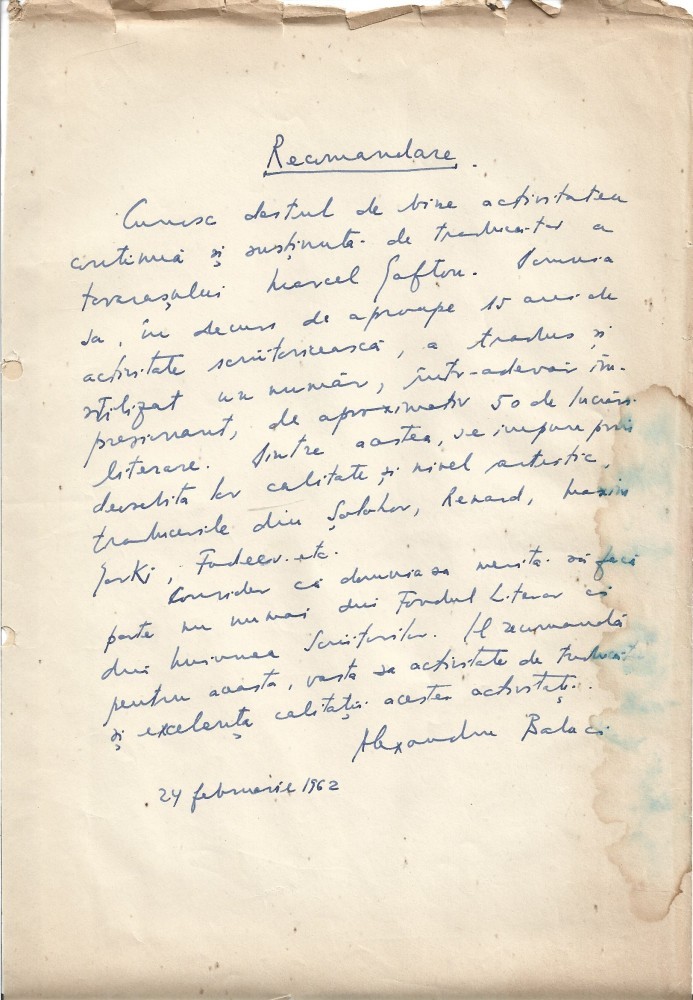 Recomandare.
Cunosc destul de bine activitatea
continuă și susținută de traducător a
tovarășului Marcel Gafton. Domnia
sa, în decurs de aproape 15 ani de
activitate scriitoricească, a tradus și
stilizat un număr, într-adevăr im-
presionant, de aproximativ 50 de lucrări
literare. Dintre acestea, se impune prin
deosebita lor calitate și nivel artistic,
traducerile din Șolohov, Renard, Maxim
Gorki, Fadeev etc.
Consider că domnia sa merită să facă
parte nu numai din Fondul Literar ci
din Uniunea Scriitorilor. Îl recomandă
pentru aceasta, vasta sa activitate de traducător
și excelența calității acestei activități.
Alexandru Balaci
24 februarie 1962